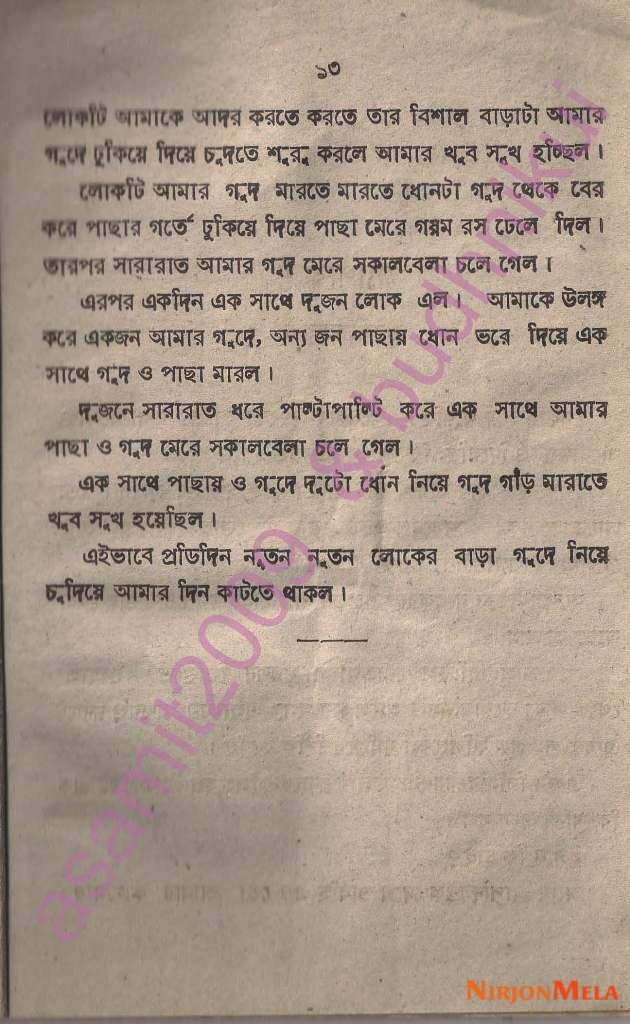 ১৩
লোকটি আমাকে আদর করতে করতে তার বিশাল বাড়াটা আমার
গুদে ঢুকিয়ে দিয়ে চুদতে শুরু করলে আমার খুব সুখ হচ্ছিল।
লোকটি আমার গুদ মারতে মারতে ধোনটা গুদ থেকে বের
করে পাছার গর্তে ঢুকিয়ে দিয়ে পাছা মেরে গরম রস ঢেলে দিল।
তারপর সারারাত আমার গুদ মেরে সকালবেলা চলে গেল।
এরপর একদিন এক সাথে দুজন লোক এল। আমাকে উলঙ্গ
করে একজন আমার গুদে, অন্য জন পাছায় ধোন ভরে দিয়ে এক
সাথে গুদ ও পাছা মারল।
দুজনে সারারাত ধরে পাল্টাপাল্টি করে এক সাথে আমার
পাছা ও গুদ মেরে সকালবেলা চলে গেল।
এক সাথে পাছায় ও গুদে দুটো ধোন নিয়ে গুদ গাঁড় মারাতে
খুব সুখ হয়েছিল।
এইভাবে প্রতিদিন নূতন নূতন লোকের বাড়া গুদে নিয়ে
চুদিয়ে আমার দিন কাটতে থাকল।
asamit2009 & budhhiku
NIRJONMELA